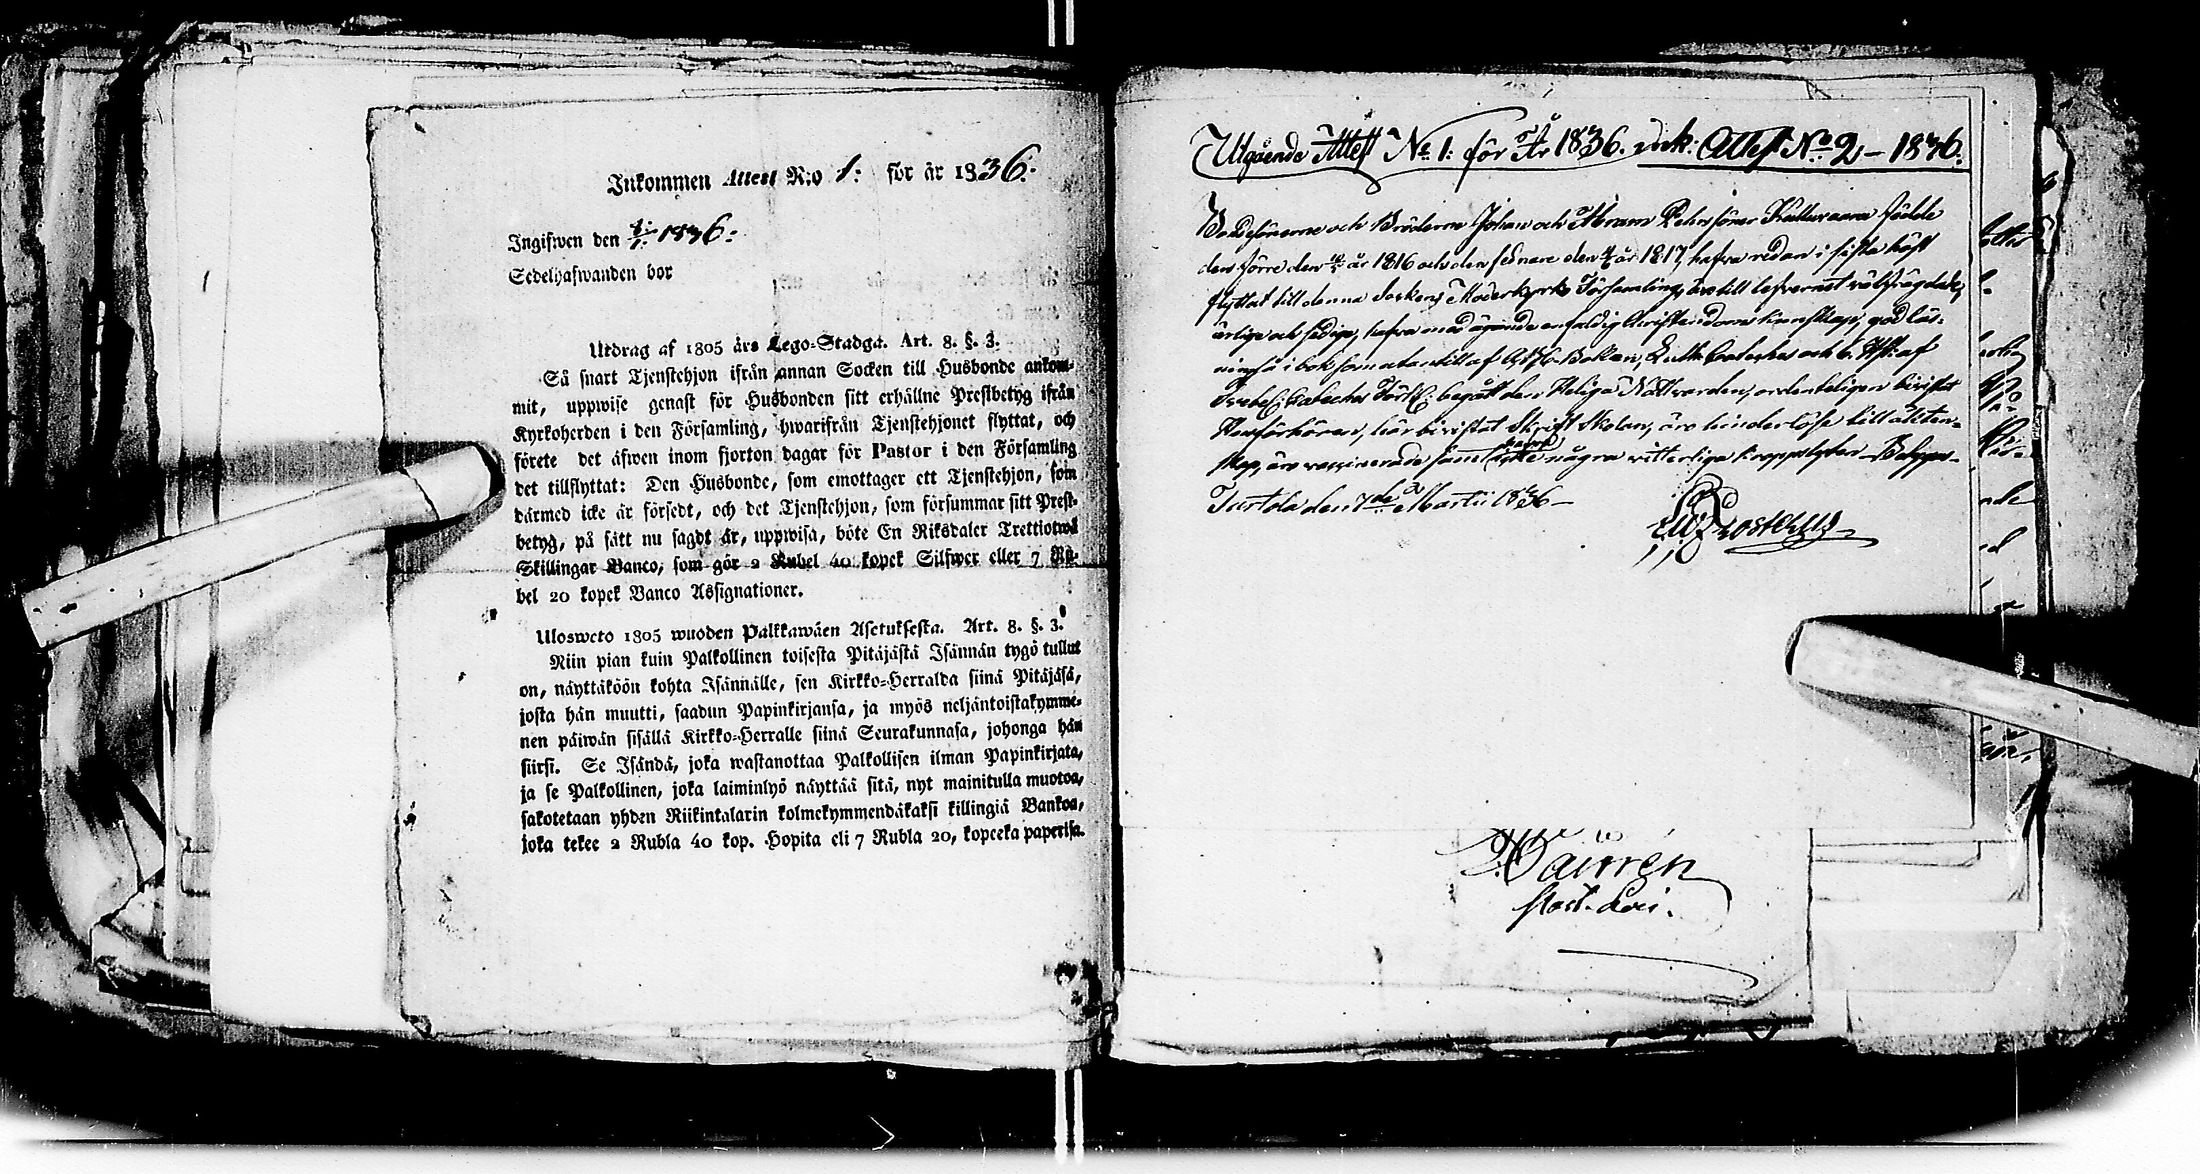 Inkommen Attest N:o 1: för år 1836:
Ingifwen den 1836:
Sedelhafwanden bor
Utdrag af 1805 års Lego-Stadga. Art. 8. §. 3.
Så snart Tjenstehjon ifrån annan Socken till Husbonde ankom-
mit, uppwise genast för Husbonden sitt erhållne Prestbetyg ifrån
Kyrkoherden i den Församling, hwarifrån Tjenstehjonet flyttat, och
förete det äfwen inom fjorton dagar för Pastor i den Församling
det tillflyttat: Den Husbonde, som emottager ett Tjenstehjon, som
därmed icke är försedt, och det Tjenstehjon, som försummar sitt Prest-
betyg, på sätt nu sagdt är, uppwisa, böte En Riksdaler Trettiotwå
Skillingar Banco, som gör 2 Rubel 40 kopek Silfwer eller 7 Ru-
bel 20 kopek Banco Assignationer.
Ulosweto 1805 wuoden Palkkawäen Asetuksesta. Art. 8. §. 3.
Niin pian kuin Palkollinen toisesta Pitäjästä Isännän tygö tullut
on, näyttäköön kohta Isännälle, sen Kirkko-Herralda siinä Pitäjäsä,
josta hän muutti, saadun Papinkirjansa, ja myös neljäntoistakymme-
nen päiwän sisällä Kirkko-Herralle siinä Seurakunnasa, johonga hän
siirsi. Se Isändä, joka wastanottaa Palkollisen ilman Papinkirjata,
ja se Palkollinen, joka laiminlyö näyttää sitä, nyt mainitulla muotoa,
sakotetaan yhden Riikintalarin kolmekymmendäkaksi killingiä Bankoa,
joka tekee 2 Rubla 40 kop. Hopita eli 7 Rubla 20, kopeeka paperisa.
Utgående Attest No 1: för År 1836. ink: Attest No 2 – 1836.
Bondesönerne och Bröderne Johan och Abram Pehrssöner Kulluvaara födde
den förre den år 1816 och den sednare den år 1817, hafva redan i sista höst
flyttat till denna Sockens Moderkyrko Församling, äro till lefvernet välfrägdade,
ärlige och sedige, hafva med ägande enfaldig Christendoms kunskap, god läs-
ning så i bok som utantill af A.B.C. Bokan, Luth. Cateches och 6. Hst: af
Cateches Förkl: begått den Heliga Nattvarden, ordenteligen bivistat
Läsförhören, här bivistat Skrift Skolan, äro hinderlöse till äkten-
skap, äro vaccinerade samt hafva icke några vitterliga kroppslyten
den 7de Martii 1836 –